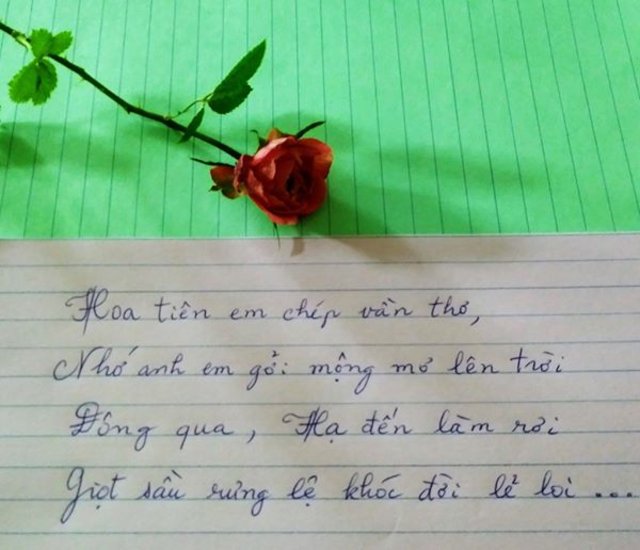 Hoa tiên em chép vần thơ,
Nhớ anh em gởi mộng mơ lên trời
Đông qua, Hạ đến làm rơi
Giọt sầu rưng lệ khóc đời lẻ loi ...